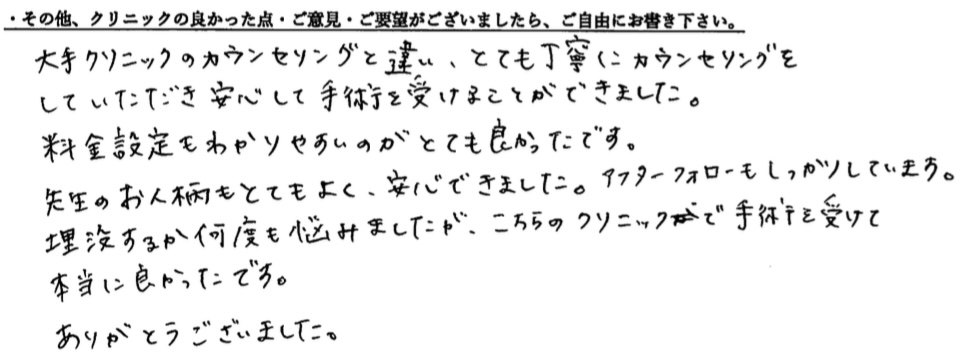 ・その他、クリニックの良かった点・ご意見・ご要望がございましたら、ご自由にお書き下さい。
大手クリニックのカウンセリングと違い、とても丁寧にカウンセリングを
していただき安心して手術を受けることができました。
料金設定もわかりやすいのがとても良かったです。
先生のお人柄もとてもよく、安心できました。アフターフォローもしっかりしています。
埋没するか何度も悩みましたが、こちらのクリニックで手術を受けて
本当に良かったです。
ありがとうございました。